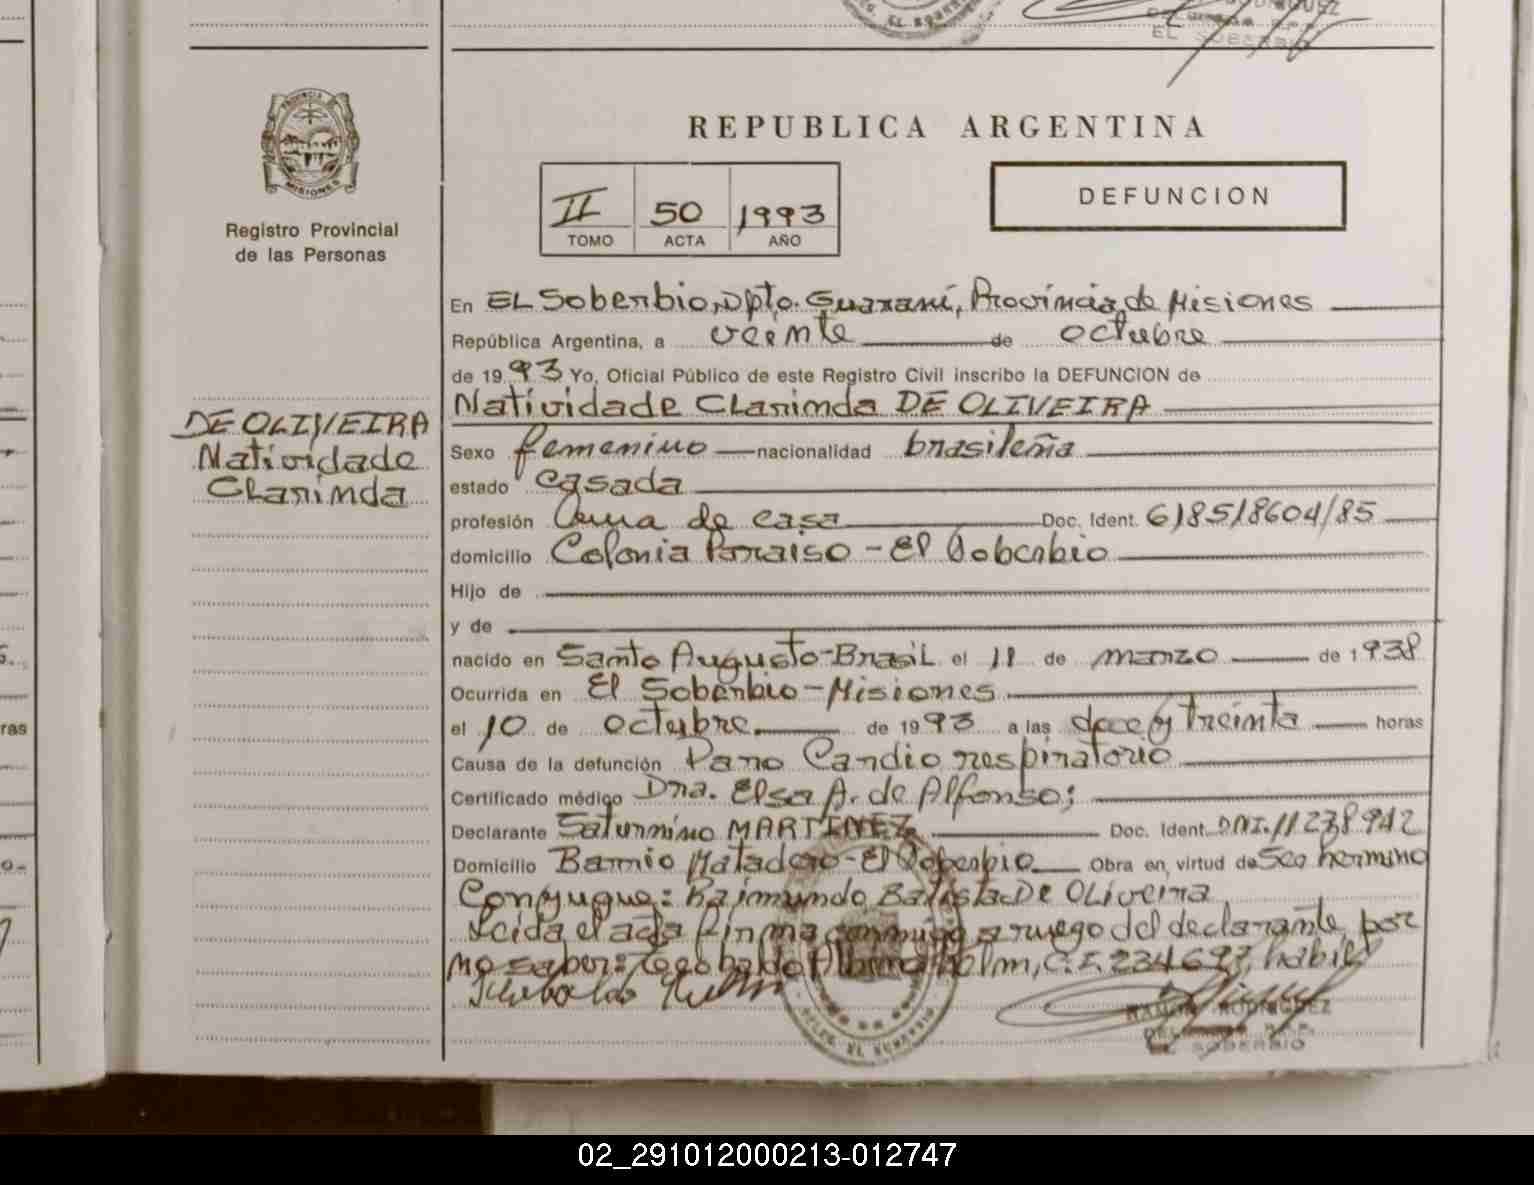 EL SOBERBIO
REPUBLICA ARGENTINA
PROVINCIA DE
MISIONES
Registro Provincial
de las Personas
II 50 1993
TOMO ACTA AÑO
DEFUNCION
En EL Soberbio, Dpto. Guaraní, Provincia de Misiones
República Argentina, a veinte de octubre
de 1993 Yo, Oficial Público de este Registro Civil inscribo la DEFUNCION de
Natividade Clarinda DE OLIVEIRA
DE OLIVEIRA
Natividade
Clarinda
Sexo femenino nacionalidad brasileña
estado casada
profesión Ama de casa Doc. Ident. 618518604/85
domicilio Colonia Paraiso - El Soberbio
Hijo de
y de
nacido en Santo Augusto-Brasil el 11 de marzo de 1938
Ocurrida en El Soberbio - Misiones
el 10 de octubre de 1993 a las doce y treinta horas
Causa de la defunción Paro Cardio respiratorio
Certificado médico Dra. Elsa A. de Alfonso;
Declarante Saturnino MARTINEZ Doc. Ident. DNI. 11238942
Domicilio Barrio Matadero - El Soberbio Obra en virtud de Ser hermino
Conyugue: Raimundo Batista De Oliveira
Leida el acta firma conmigo a ruego del declarante, por
no saber: Teobaldo Albino Holm, C.I. 234697, habil
RAMON RODRIGUEZ
DELEGADO R.P.P.
EL SOBERBIO
DELEG. EL SOBERBIO
ras
02_291012000213-012747